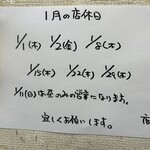 1月の店休日
1/1(木) 1/2(金) 1/8(木)
1/15(木) 1/22(木) 1/29(木)
1/11(日)は昼のみの営業になります。
宜しくお願いします。
店